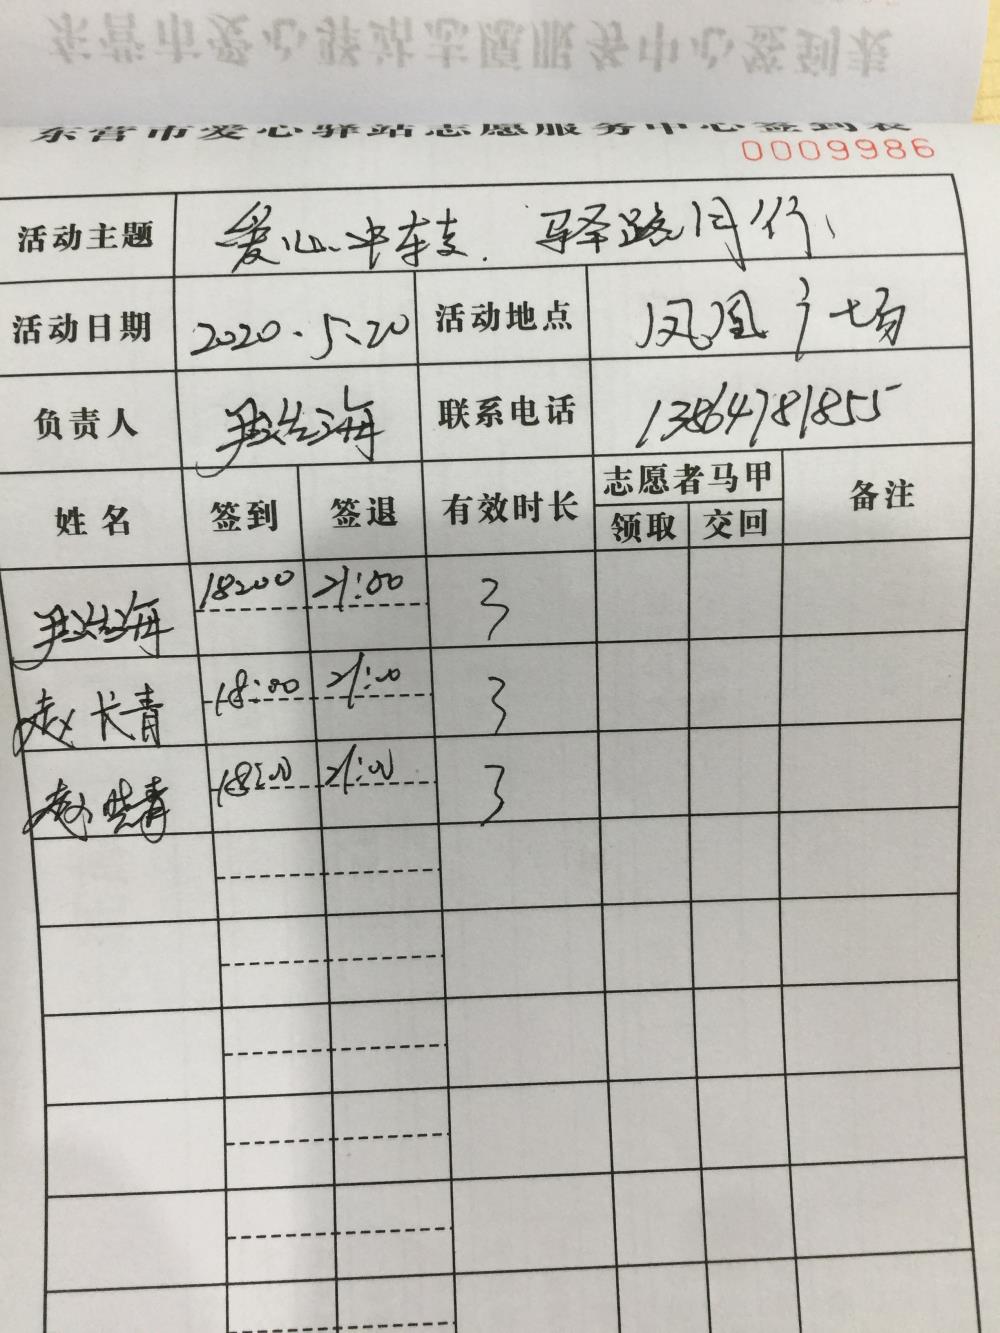 东营市爱心驿站志愿服务中心签到表
东营市爱心驿站志愿服务中心签到表
0009986
活动主题 爱心 驿路同行
活动日期 2020.5.20 活动地点 凤凰广场
负责人 尹 海 联系电话 13864781855
姓名 签到 签退 有效时长 志愿者马甲 备注
领取 交回
尹 海 18:00 21:00 3
赵长青 18:00 21:00 3
赵晓青 18:00 21:00 3